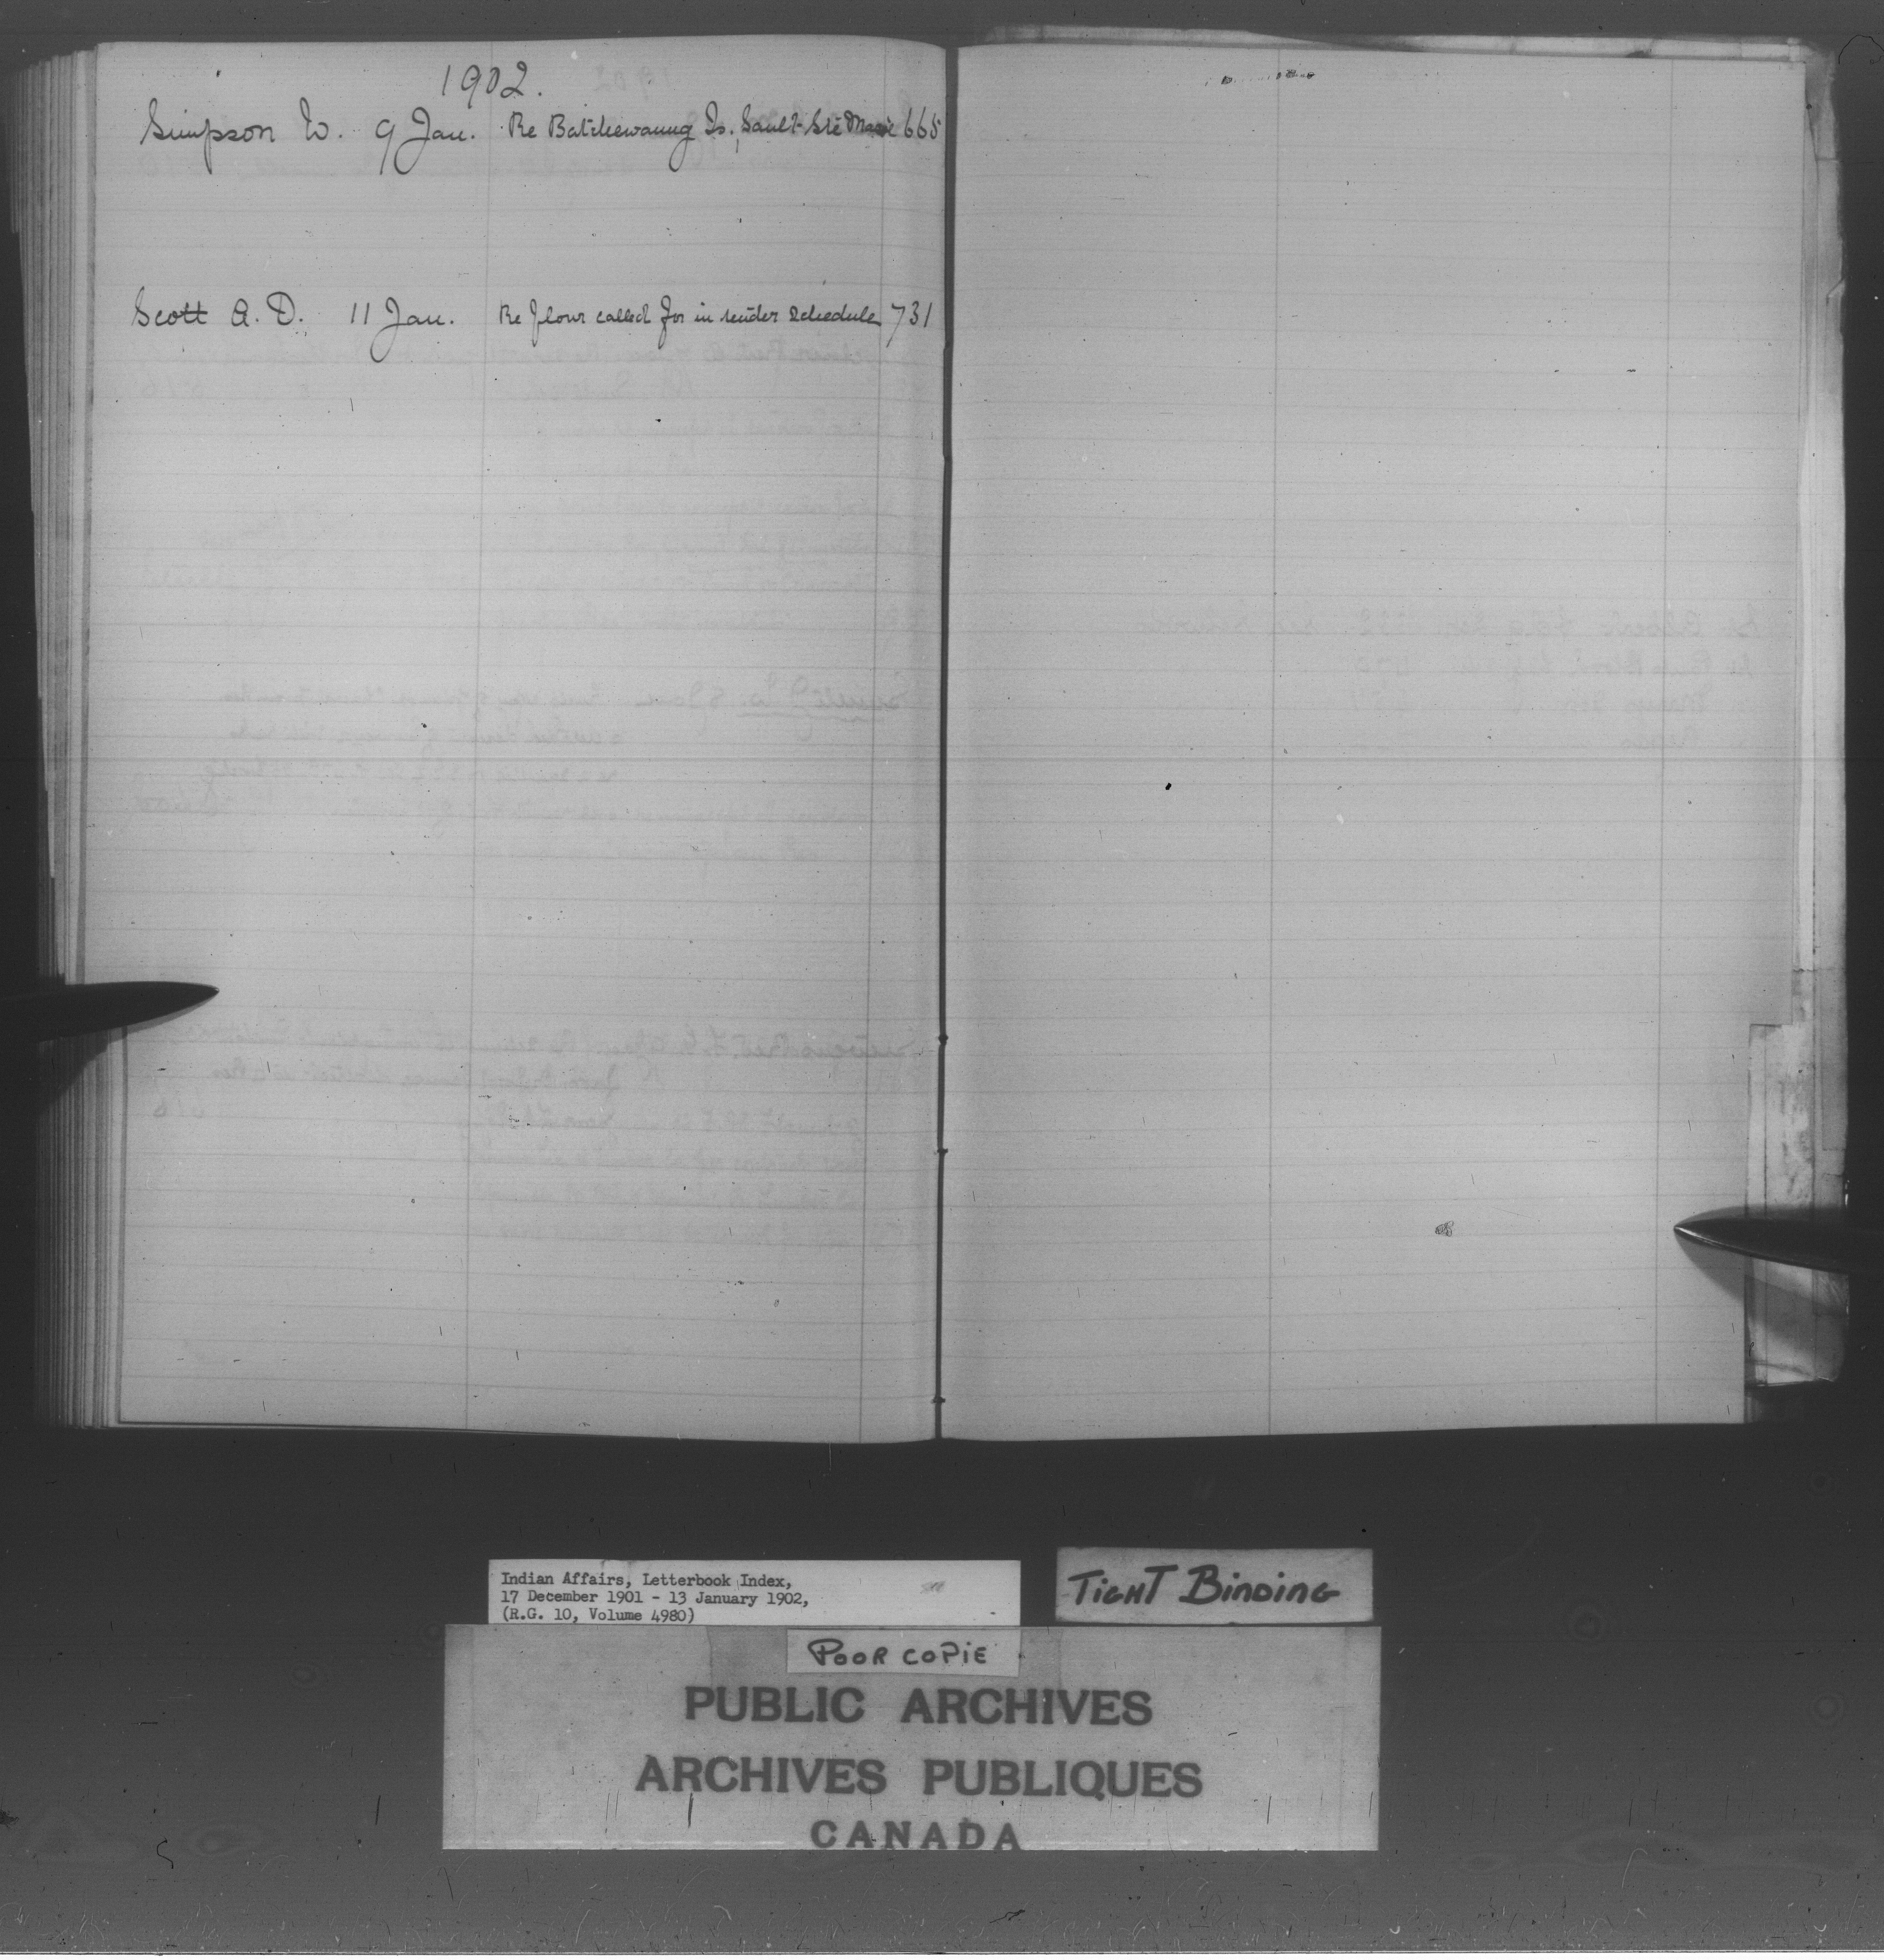 1902.
Simpson W. 9 Jan. Re Batchewaung Is., Sault Ste Marie 665
Scott A. D. 11 Jan. Re flour called for in tender schedule 731
Indian Affairs, Letterbook Index,
17 December 1901 - 13 January 1902,
(R.G. 10, Volume 4980)
TIGHT BINDING
POOR COPIE
PUBLIC ARCHIVES
ARCHIVES PUBLIQUES
CANADA